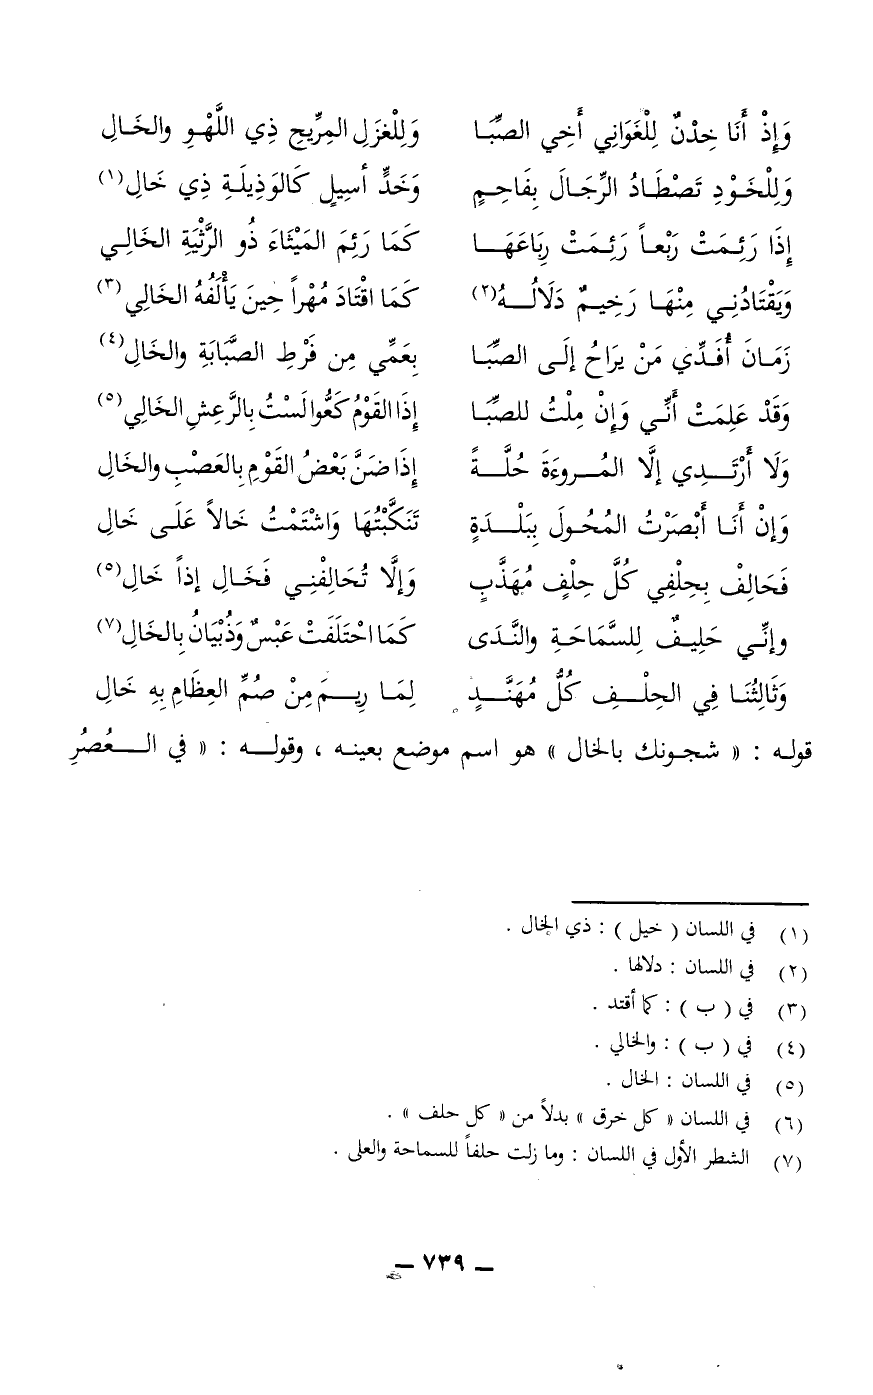 وَإِذْ أَنَا خِدْنٌ لِلْغَوَانِي أَخِي الصِّبَا وَلِلْغَزَلِ المِرِّيحِ ذِي اللَّهْوِ والخَالِ
وَلِلْخَوْدِ تَصْطَادُ الرِّجَالَ بِفَاحِمٍ وَخَدٍّ أسِيلٍ كَالوَذِيلَةِ ذِي خَالِ(١)
إِذَا رَئِمَتْ رَبْعاً رَئِمَتْ رِبَاعَهَا كَمَا رَئِمَ المَيْثَاءَ ذُو الرَّثْيَةِ الخَالِي
وَيَقْتَادُنِي مِنْهَا رَخِيمُ دَلَالُهُ(٢) كَمَا اقْتَادَ مُهْراً حِينَ يَأْلَفُهُ الخَالِي(٣)
زَمَانَ أُفَدِّي مَنْ يَرَاحُ إِلَى الصِّبَا بِعَمِّي مِن فَرْطِ الصَّبَابَةِ والخَالِ(٤)
وَقَدْ عَلِمَتْ أَنِّي وَإِنْ مِلْتُ للصِّبَا إِذَا القَوْمُ كَعُّوا لَسْتُ بِالرَّعِشِ الخَالِي(٥)
وَلَا أَرْتَدِي إِلَّا المُروءَةَ حُلَّةً إِذَا ضَنَّ بَعْضُ القَوْمِ بِالعَصْبِ والخَالِ
وَإنْ أَنَا أَبْصَرْتُ المُحُولَ بِبَلْدَةٍ تَنَكَّبْتُهَا وَاشْتَمْتُ خَالاً عَلَى خَالِ
فَحَالِفْ بِحِلْفِي كُلَّ حِلْفٍ مُهَذَّبٍ وَإِلَّا تُحَالِفْنِي فَخَالِ إِذاً خَالِ(٥)
وإنِّي حَلِيفٌ لِلسَّمَاحَةِ والنَّدَى كَمَا احْتَلَفَتْ عَبْسٌ وَذُبْيَانُ بِالخَالِ(٧)
وَثَالِثُنَا فِي الحِلْفِ كُلُّ مُهَنَّدٍ لِمَا رِيمَ مِنْ صُمِّ العِظَامِ بِهِ خَالِ
قوله : « شجونك بالخال » هو اسم موضع بعينه ، وقوله : « في العُصُرِ
(١) في اللسان ( خيل ) : ذي الخال .
(٢) في اللسان : دلالها .
(٣) في ( ب ) : كما أقتد .
(٤) في ( ب ) : والخالي .
(٥) في اللسان : الخال .
(٦) في اللسان « كل خرق » بدلاً من « كل حلف » .
(٧) الشطر الأول في اللسان : وما زلت حلفاً للسماحة والعلى .
ـ ٧٣٩ ـ